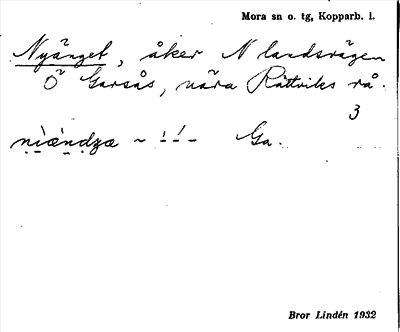 Mora sn o. tg, Kopparb. l.
Nyänget, åker N landsvägen
Ö Garsås, nära Rättviks rå.
3
Ga.
Bror Lindén 1932